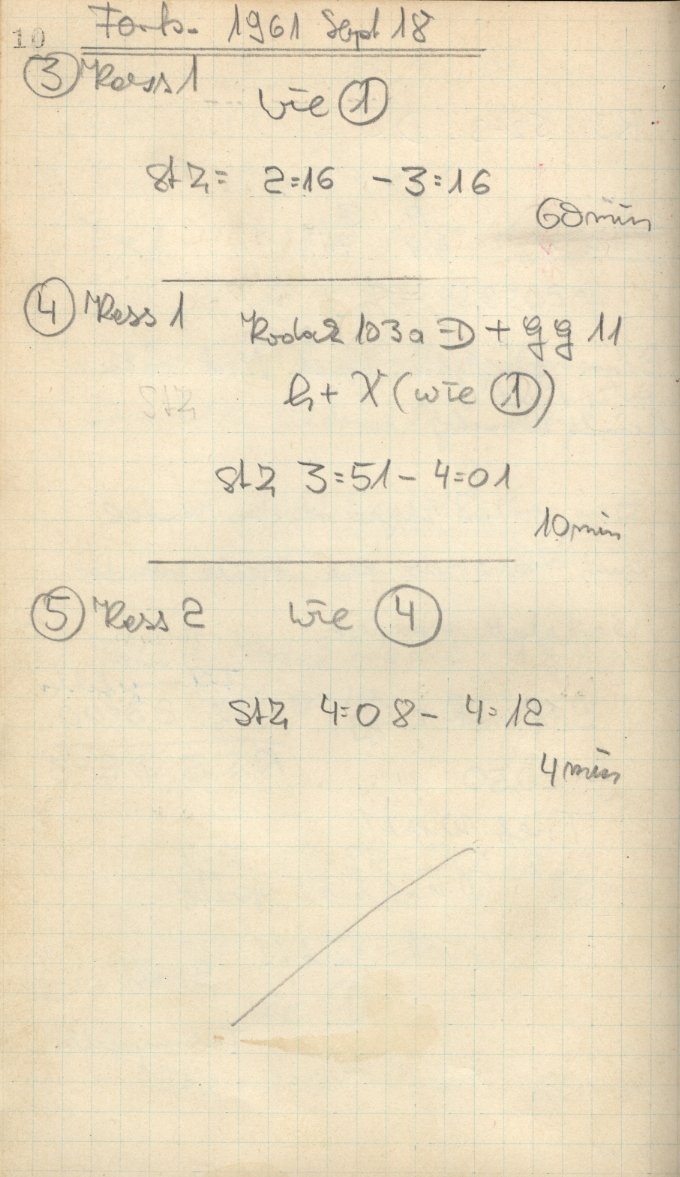 10 Forts. 1961 Sept 18
③ Kass 1
wie ①
StZ = 2:16 - 3:16
60 min
④ Kass 1 Kodak 103a-D + GG 11
h + χ (wie ①)
StZ 3:51 - 4:01
10 min
⑤ Kass 2 wie ④
StZ 4:08 - 4:12
4 min